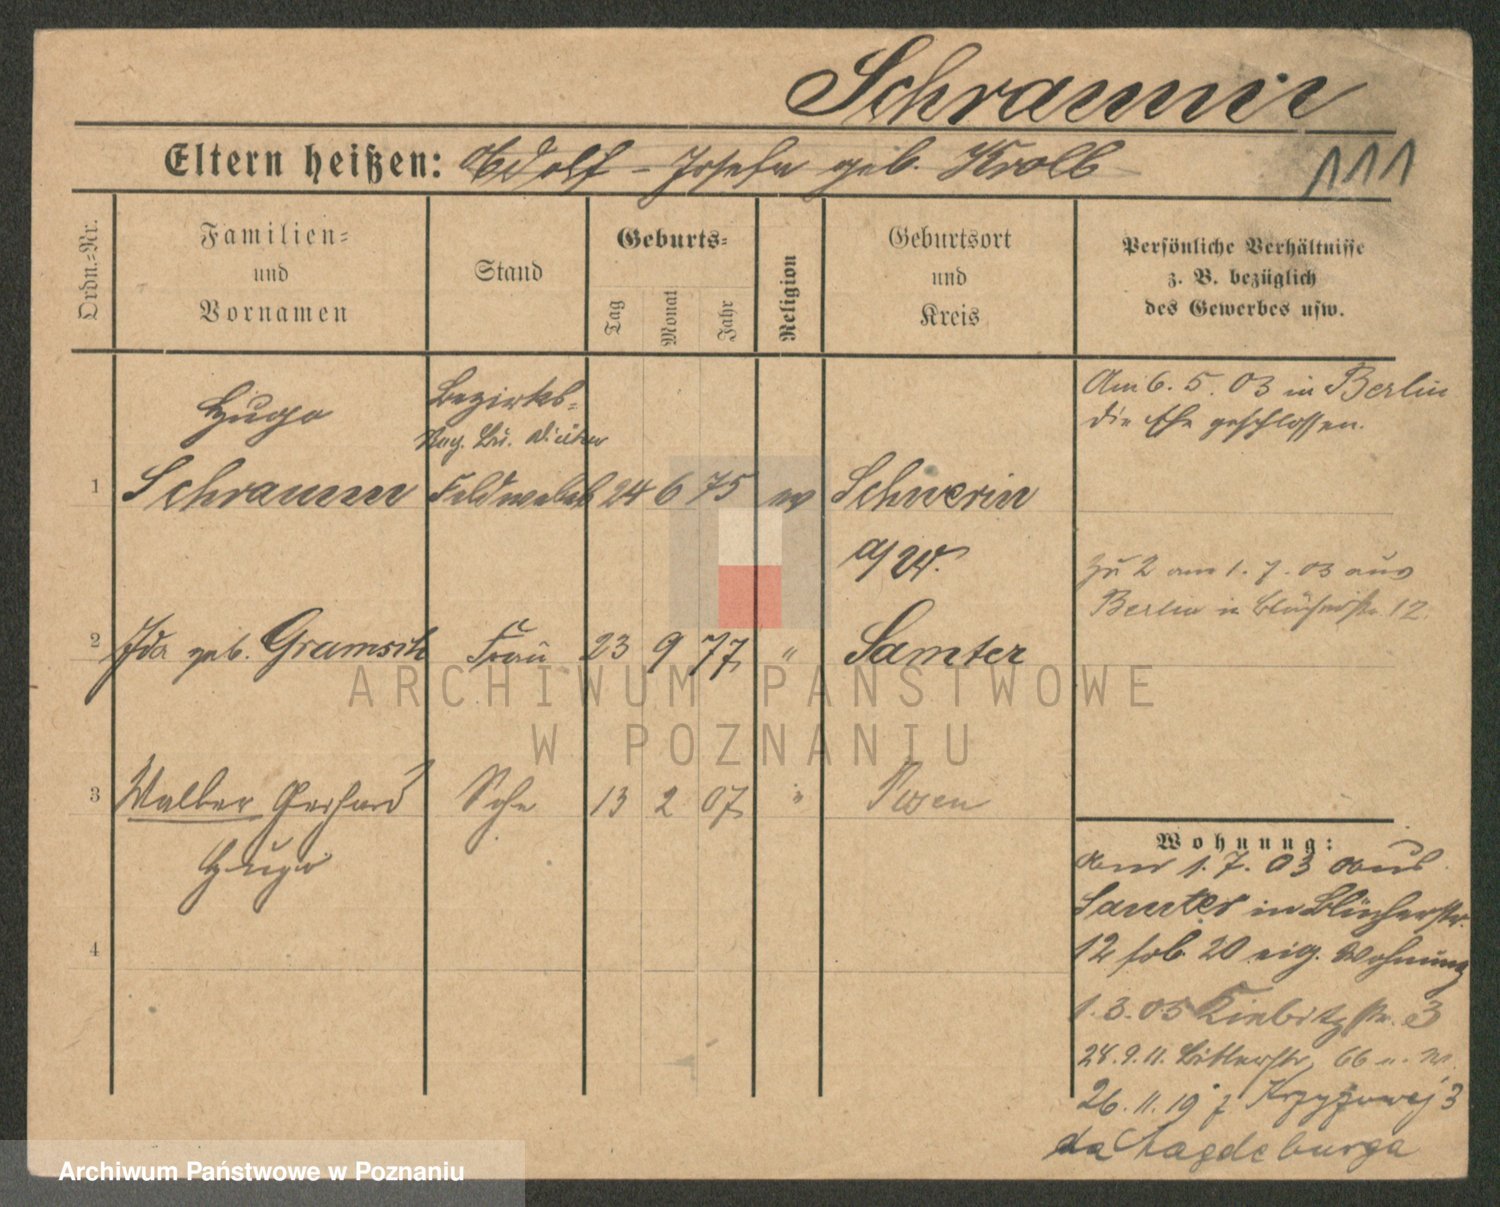 Schramm
Eltern heißen: Adolf - Josefa geb. Krolb
111
Ordn.-Nr.
Familien- und Vornamen
Stand
Geburts-
Tag
Monat
Jahr
Religion
Geburtsort und Kreis
Persönliche Verhältnisse z. B. bezüglich des Gewerbes usw.
Hugo
Bezirks-
Am 6. 5. 03 in Berlin
die Ehe geschlossen.
1 Schramm Feldwebel 24 6 75 ev Schwerin
a/W.
zu 2 am 1. 7. 03 aus
Berlin in Blücherstr. 12.
2 Ida geb. Gramsch Frau 23 9 77 " Samter
ARCHIWUM PAŃSTWOWE
W POZNANIU
3 Walter Gerhard Sohn 13 2 07 " Posen
Hugo
4
Wohnung:
am 1. 7. 03 aus
Samter in Blücherstr.
12 20 eig. Wohnung
1. 3. 05 Kiebitzstr. 3
28. 9. 11. 66
26. 11. 19 z Krzyżowej 3
da Magdeburga
Archiwum Państwowe w Poznaniu